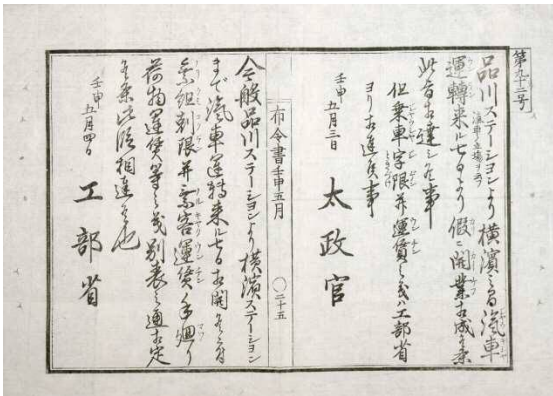 品川ステーションより横濱迄之間汽車
運轉来ル七日より假ニ開業相成候条
此旨相達候事
但乗車字限并運賃之義ハ工部省
ヨリ相達候事
壬申五月三日
太政官
布令書壬申五月
〇二十五
今般品川ステーションより横濱ステーション
まで汽車運轉来ル七日相開き候間
乗組刻限并乗客運賃手廻り
荷物運賃等之義別表之通相定
候条此段相達候也
壬申五月四日
工部省